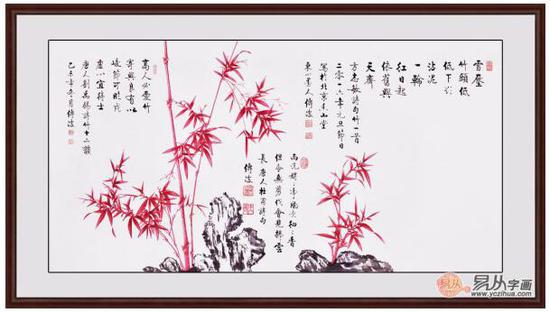 雪壓
竹頭低
低下欲
沾泥
一輪
紅日起
依舊與
天齊
方志敏詩句竹一首
二零一六年元旦節日
寫於北京東山堂
東山堂人傅凌
雨洗娟娟淨風吹細細香
但令無剪伐會見拂雲
長 唐人杜甫詩句
傅凌
高人必愛竹
寄興良有以
峻節可臨戎
虛心宜待士
唐人劉禹錫詩竹十二韻
冬月傅凌
易从字画
www.yczihua.com